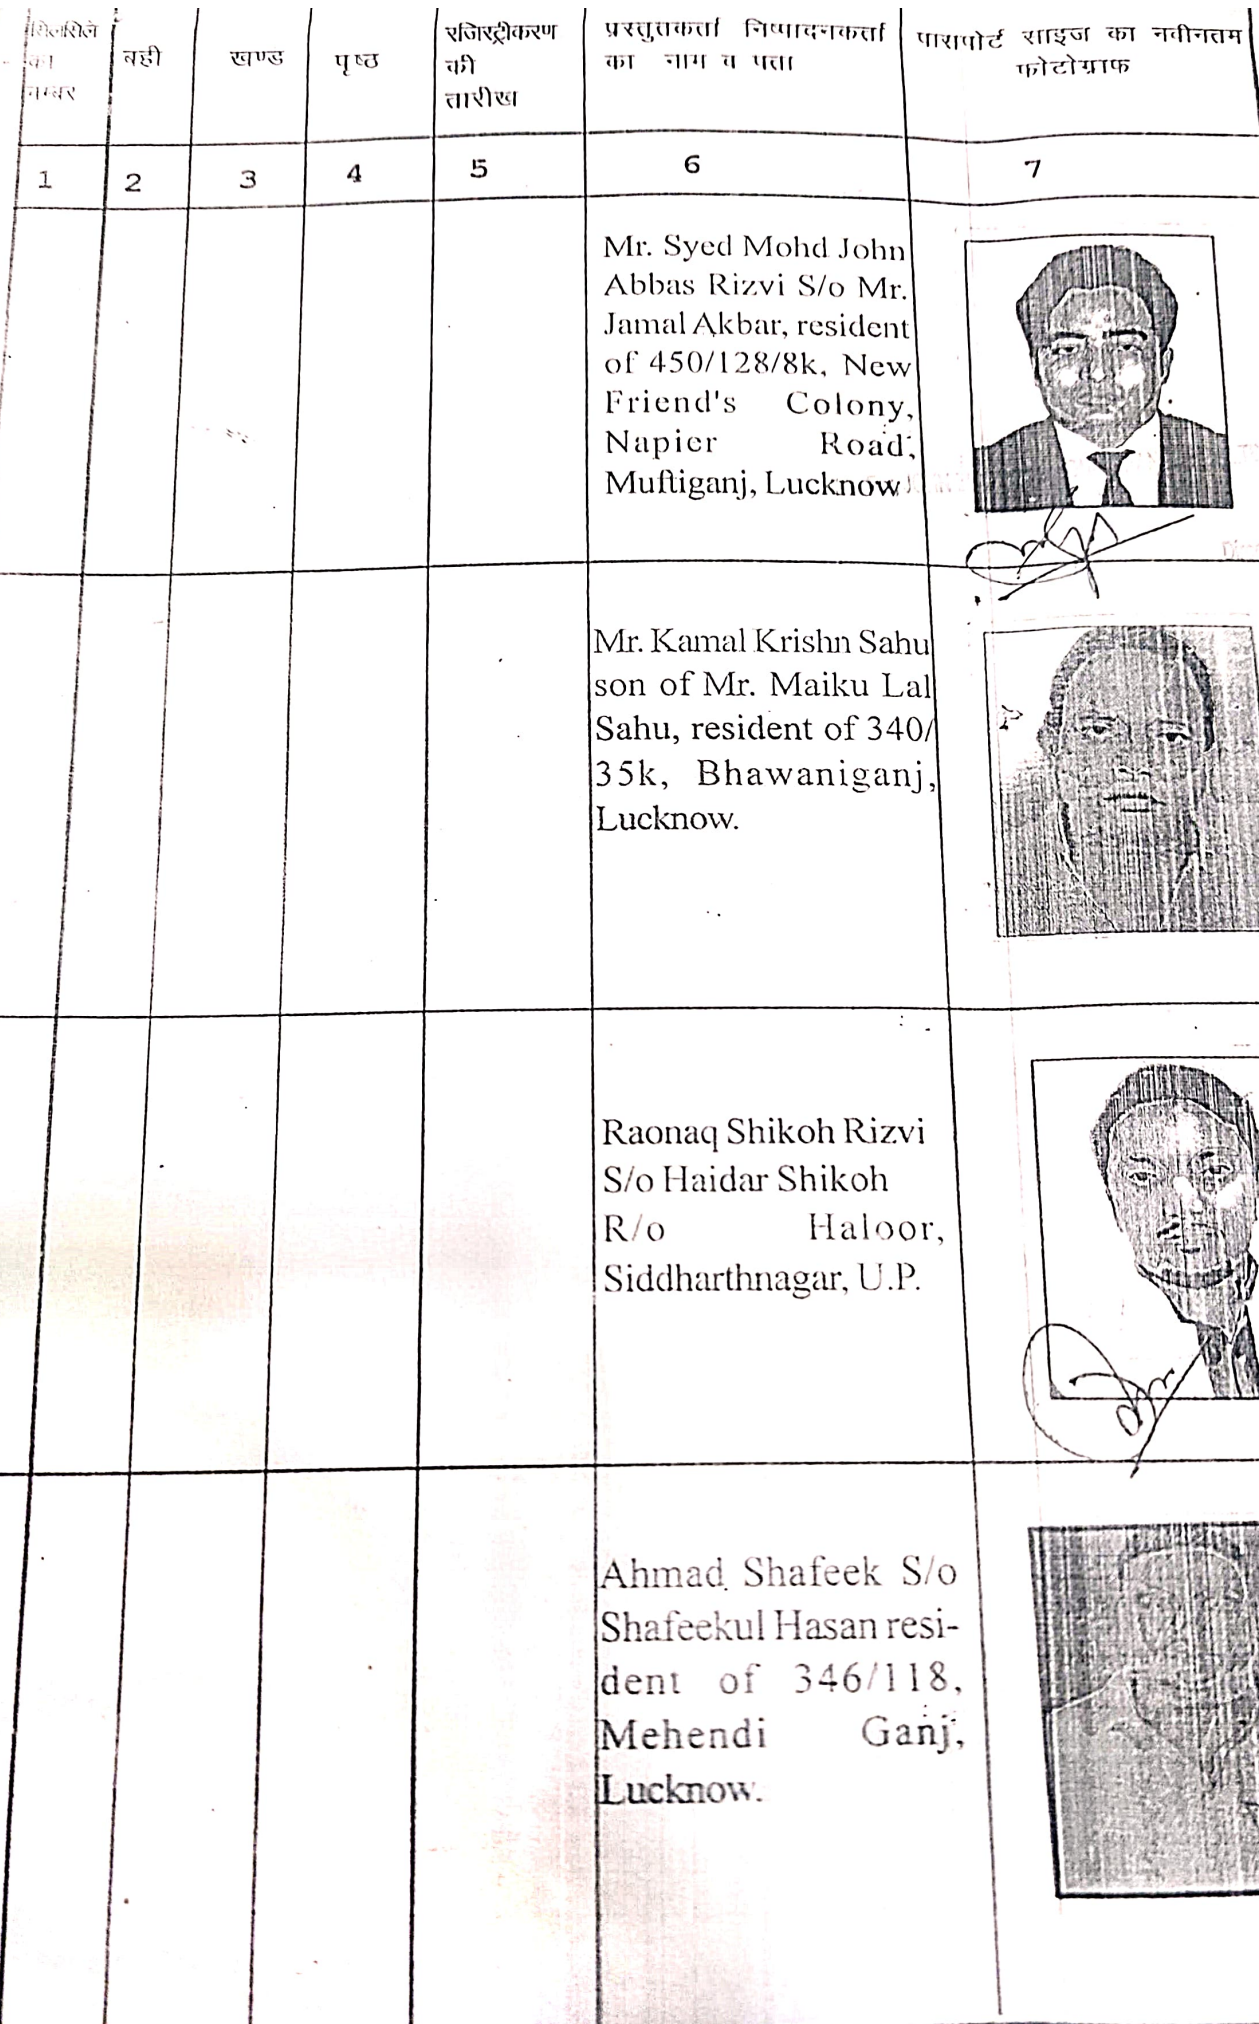 सिलसिले
का
नम्बर
बही
खण्ड
पृष्ठ
रजिस्ट्रीकरण
की
तारीख
प्रस्तुतकर्ता निष्पादनकर्ता
का नाम व पता
पासपोर्ट साइज का नवीनतम
फोटोग्राफ
1 2 3 4 5 6 7
Mr. Syed Mohd John
Abbas Rizvi S/o Mr.
Jamal Akbar, resident
of 450/128/8k, New
Friend's Colony,
Napier Road,
Muftiganj, Lucknow
Mr. Kamal Krishn Sahu
son of Mr. Maiku Lal
Sahu, resident of 340/
35k, Bhawaniganj,
Lucknow.
Raonaq Shikoh Rizvi
S/o Haidar Shikoh
R/o Haloor,
Siddharthnagar, U.P.
Ahmad Shafeek S/o
Shafeekul Hasan resi-
dent of 346/118,
Mehendi Ganj,
Lucknow.